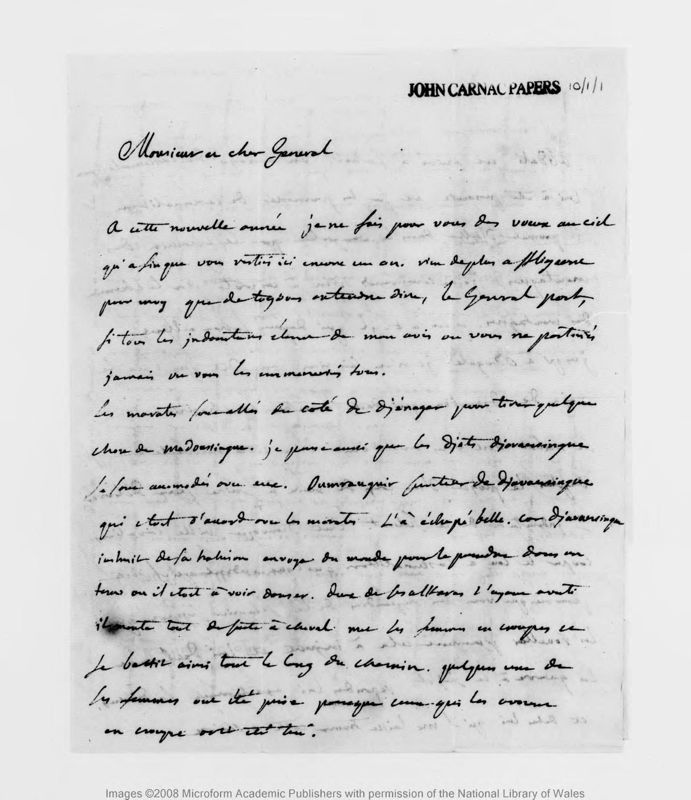 JOHN CARNAC PAPERS 10/1/1
Monsieur et cher General
A cette nouvelle année je ne fais pour vous des vœux au ciel
qu'a fin que vous restiés ici encore un an. rien de plus
pour moy que de toujours entendre dire, le General part,
si tous les indoustans étoient de mon avis ou vous ne partiriés
jamais ou vous les emmeneriés tous.
Les marates sont allés du coté de djénagar pour tirer quelque
chose de madousingue. je pense aussi que les djats djavaersingue
se sont accomodés avec eux. frere de djavaersingue
qui etoit d'acord avec les marates l'a échapé belle. car djavaersingue
instruit de sa trahison envoya du monde pour le prendre dans un
ou il etoit à voir danser. deux de ses alkaras l'ayant averti
il monte tout de suite à cheval met ses femmes en croupes et
se battit ainsi tout le long du chemin. quelques unes de
ses femmes ont été prise parceque ceux qui les avoient
en croupe ont été tué.
Images ©2008 Microform Academic Publishers with permission of the National Library of Wales